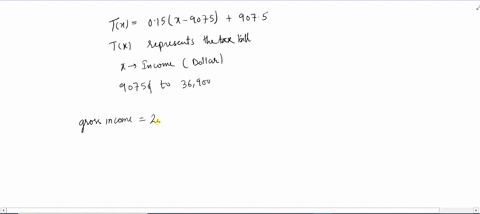 T(x) = 0.15(x-9075) + 907.5
T(x) represents the tax bill
x → Income (Dollar)
9075$ to 36,900
gross income = 2